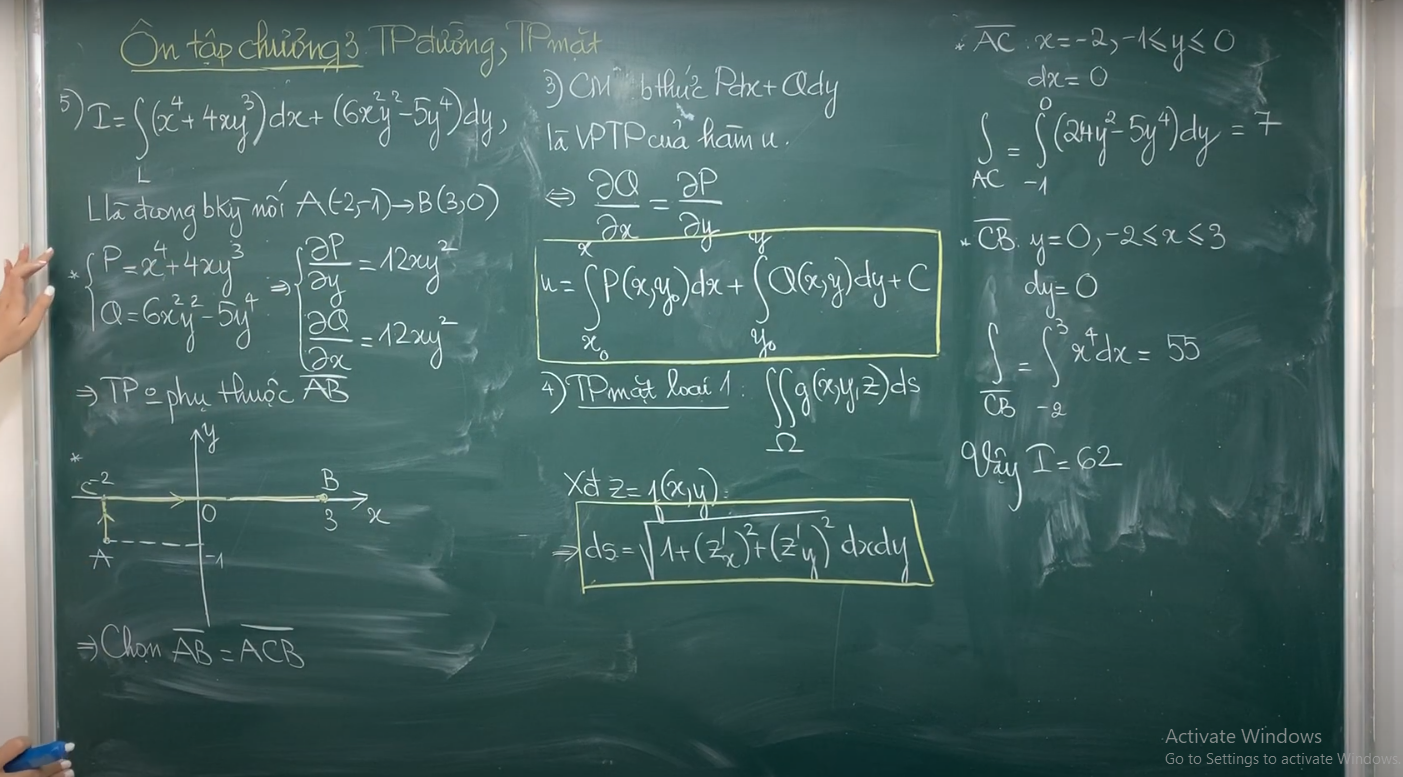 Ôn tập chương 3 TP đường, TP mặt
5) I = ∫_L (x⁴ + 4xy³)dx + (6x²y² - 5y⁴)dy,
L là đường bkỳ nối A(-2,-1) → B(3,0)
* { P = x⁴ + 4xy³ ⇒ { ∂P/∂y = 12xy²
Q = 6x²y² - 5y⁴ ∂Q/∂x = 12xy²
⇒ TP o phụ thuộc AB
*
y
C -2 O B 3 x
A -1
⇒ Chọn AB = ACB
3) CM b thức Pdx + Qdy
là VPTP của hàm u.
⇔ ∂Q/∂x = ∂P/∂y
u = ∫_{x₀}^{x} P(x,y₀)dx + ∫_{y₀}^{y} Q(x,y)dy + C
4) TP mặt loại 1: ∬_Ω g(x,y,z)ds
Xđ z = f(x,y).
⇒ ds = √(1 + (z'x)² + (z'y)²) dxdy
* AC: x = -2, -1 ≤ y ≤ 0
dx = 0
∫_{AC} = ∫_{-1}^{0} (24y² - 5y⁴)dy = 7
* CB: y = 0, -2 ≤ x ≤ 3
dy = 0
∫_{CB} = ∫_{-2}^{3} x⁴dx = 55
Vậy I = 62
Activate Windows
Go to Settings to activate Windows.